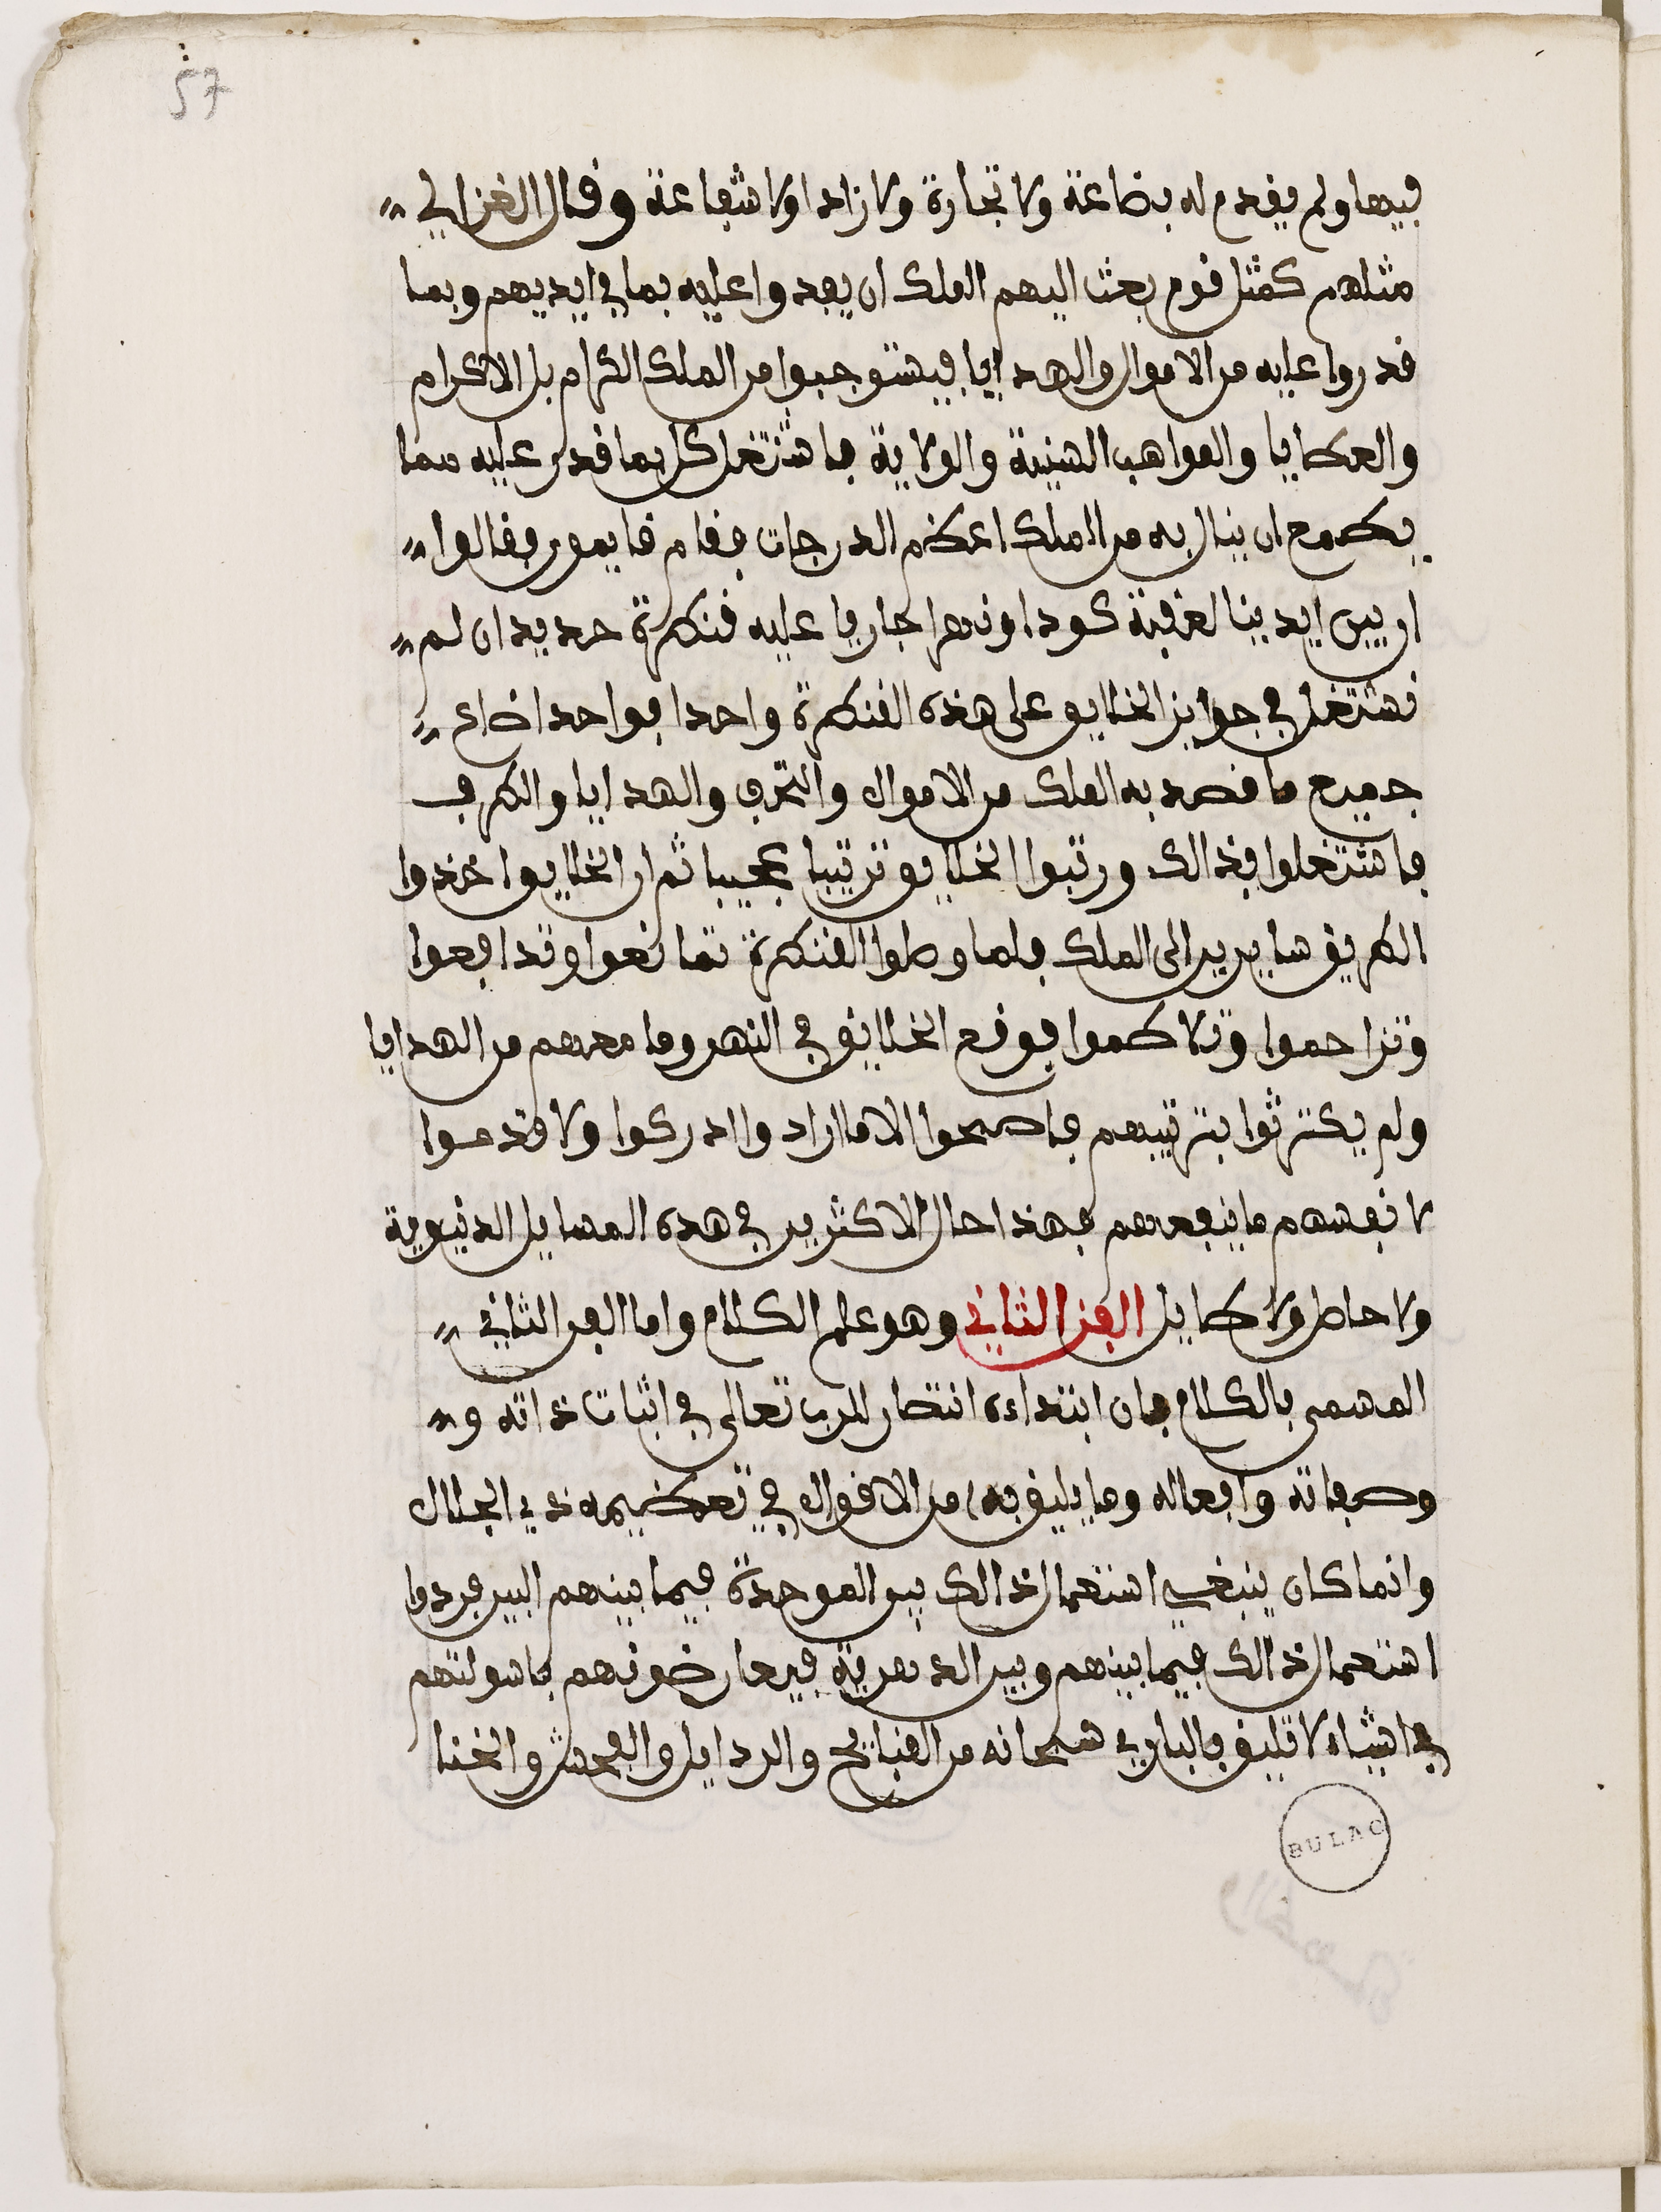 57
فيها ولم يقدم له بضاعة ولا تجارة ولا زادا ولا شفاعة وقال الغزالي
مثلهم كمثل قوم بعث اليهم الملك ان يفدوا عليه بما في ايديهم وبما
قدروا عليه من الاموال والهدايا فيستوجبوا من الملك الكرام بل الاكرام
والعطايا والمواهب السنية والولاية فاشتغل كل بما قدر عليه مما
يطمع ان ينال به من الملك اعظم الدرجات فقام قايمون فقالوا
ان بين ايدينا لعقبة كودا ونهرا جاريا عليه قنطرة حديد ان لم
نشتغل في جواز الخلايق على هذه القنطرة واحدا فواحدا ضاع
جميع ما قصد به الملك من الاموال والتحف والهدايا والطرف
فاشتغلوا بذالك ورتبوا الخلايق ترتيبا عجيبا ثم ان الخلايق اخذوا
الطريق سايرين الى الملك فلما وصلوا القنطرة تمانعوا وتدافعوا
وتزاحموا وتلاطموا فوقع الخلايق في النهر وما معهم من الهدايا
ولم يكترثوا بترتيبهم فاصبحوا لا ما ارادوا ادركوا ولا قدموا
لانفسهم ما ينفعهم فهذا حال الاكثرين في هذه المسايل الدنيوية
ولا حاصل ولا طايل الفن الثاني وهو علم الكلام واما الفن الثاني
المسمى بالكلام فان ابتداءه انتصار للرب تعالى في اثبات ذاته و
وصفاته وافعاله وما يليق به من الاقوال في تعظيمه ذي الجلال
وانما كان ينبغي استعمال ذالك بين الموحدة فيما بينهم البين فردوا
استعمال ذالك فيما بينهم وبين الدهرية فيعارضونهم فاسولتهم
في اشياء لا تليق بالباري سبحانه من القبايح والردايل والفحش والخنا
BULAC